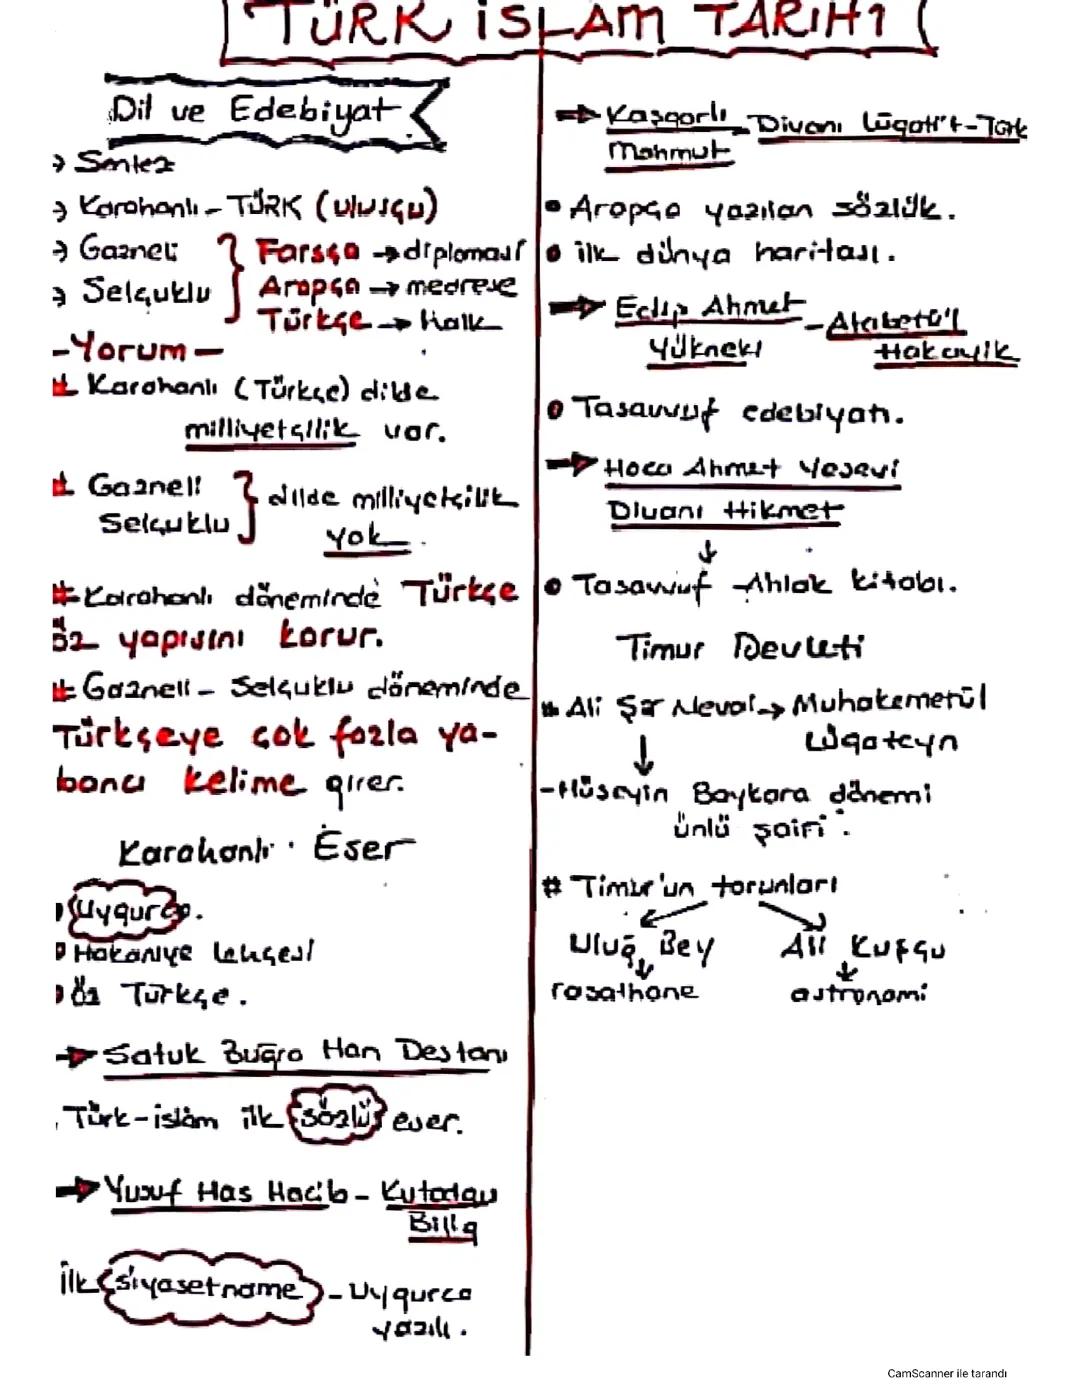 TÜRK İSLAM TARİHİ
Dil ve Edebiyat
→ Sentez
→ Karahanlı - TÜRK (ulusçu)
→ Gazneli
→ Selçuklu
Farsça → diplomasi
Arapça → medrese
Türkçe → Halk
- Yorum -
# Karahanlı (Türkçe) dilde
milliyetçilik var.
# Gazneli
Selçuklu
dilde milliyetçilik
yok.
# Karahanlı döneminde Türkçe
öz yapısını korur.
# Gazneli - Selçuklu döneminde
Türkçeye çok fazla ya-
bancı kelime girer.
Karahanlı Eser
Uygurca.
Hakaniye Lehçesi
öz Türkçe.
→ Satuk Buğra Han Destanı
Türk-islâm ilk sözlü eser.
→ Yusuf Has Hacib - Kutadgu
Bilig
İlk siyasetname - Uygurca
yazılı.
→ Kaşgarlı
Mahmut
- Divanı Lügati't-Türk
• Arapça yazılan sözlük.
• ilk dünya haritası.
→ Edip Ahmet
Yükneki
- Atabetü'l
Hakayik
• Tasavvuf edebiyatı.
→ Hoca Ahmet Yesevi
Divanı Hikmet
↓
• Tasavvuf Ahlak kitabı.
Timur Devleti
# Ali Şir Nevai → Muhakemetül
Lügateyn
↓
- Hüseyin Baykara dönemi
ünlü şairi.
# Timur'un torunları
Uluğ Bey
Ali Kuşçu
rasathane
astronomi
CamScanner ile tarandı